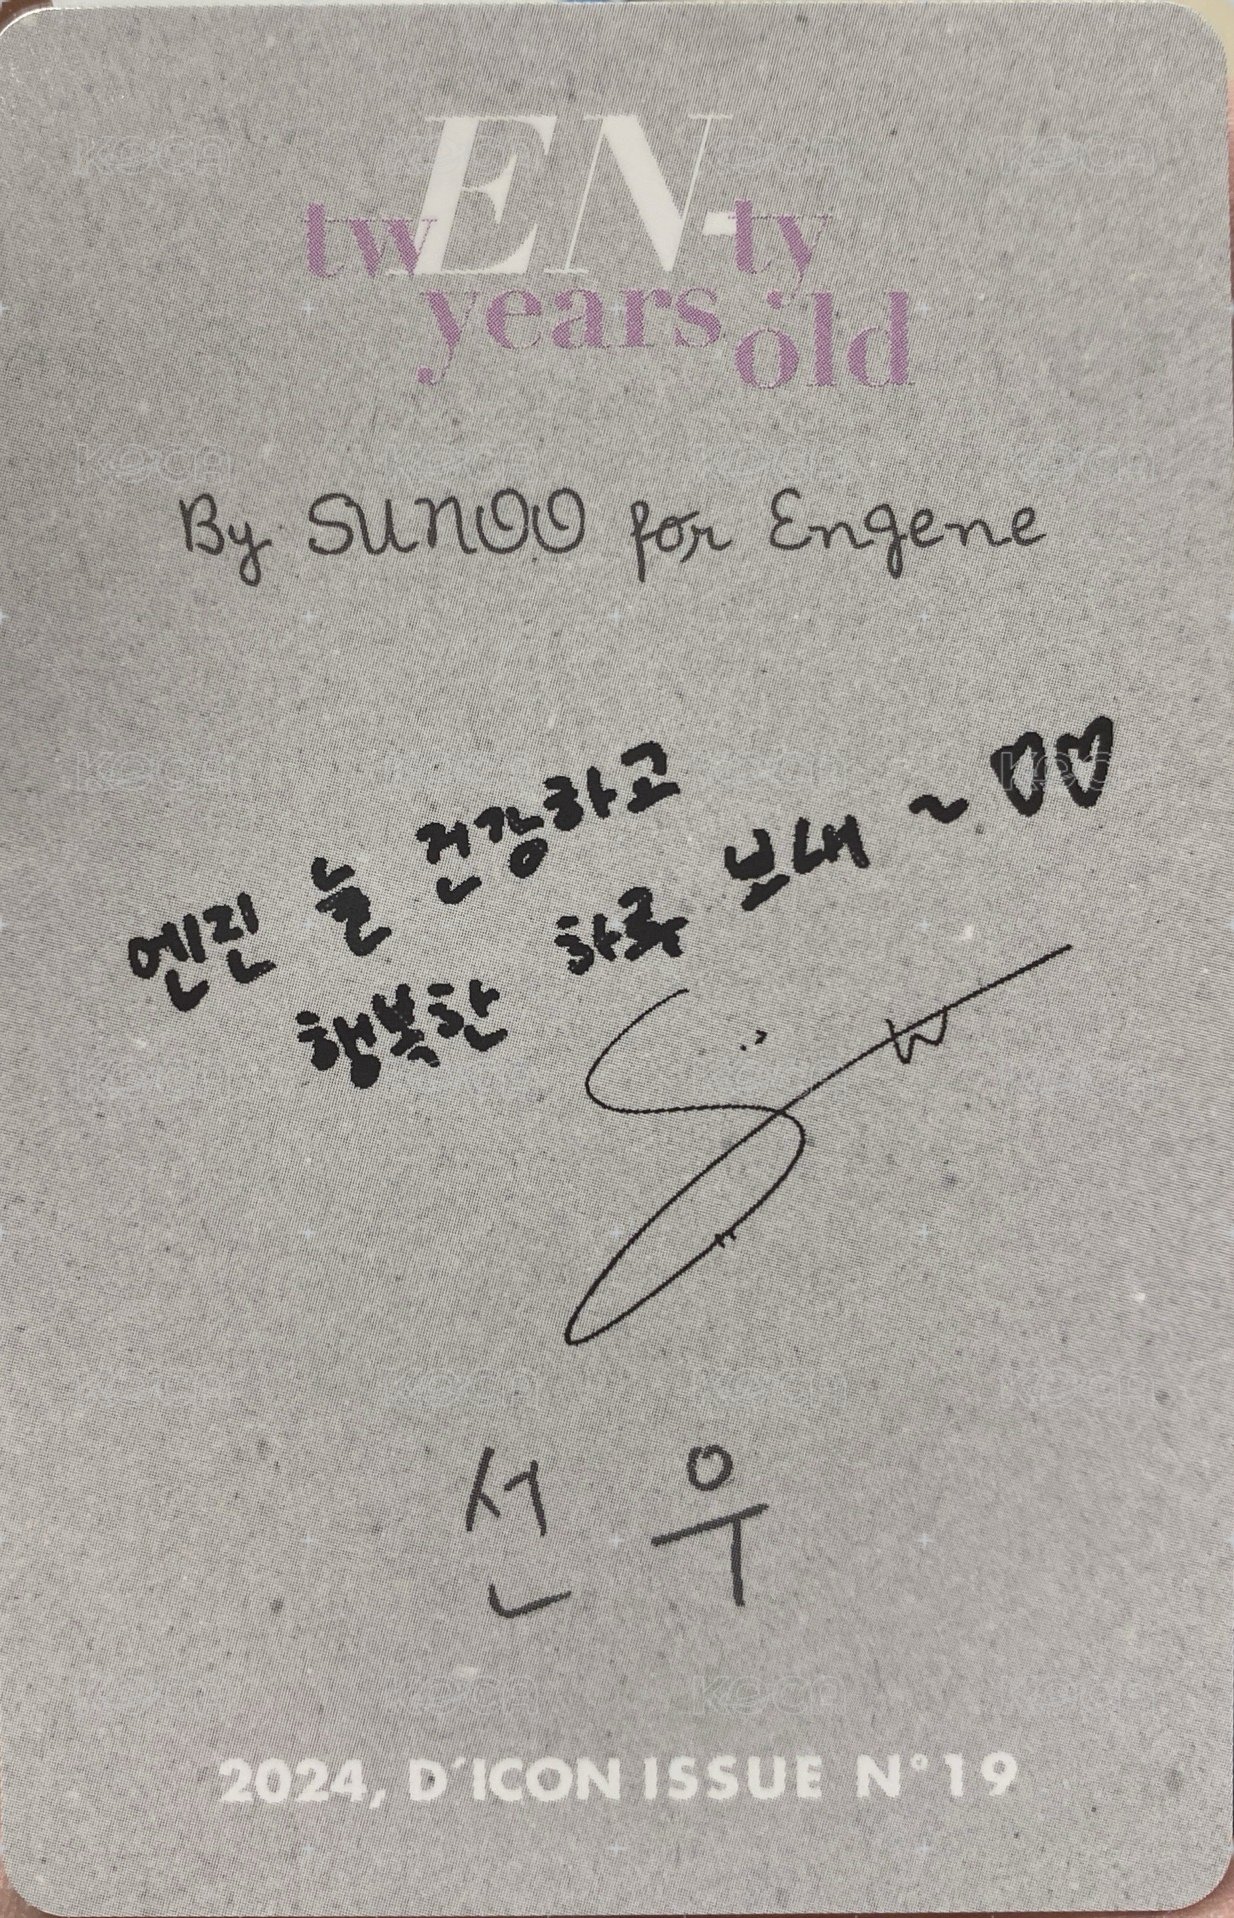 twEN-ty
years old
By SUNOO for Engene
엔진 늘 건강하고
행복한 하루 보내 ~ ♡♡
선우
2024, D'ICON ISSUE N°19
koca